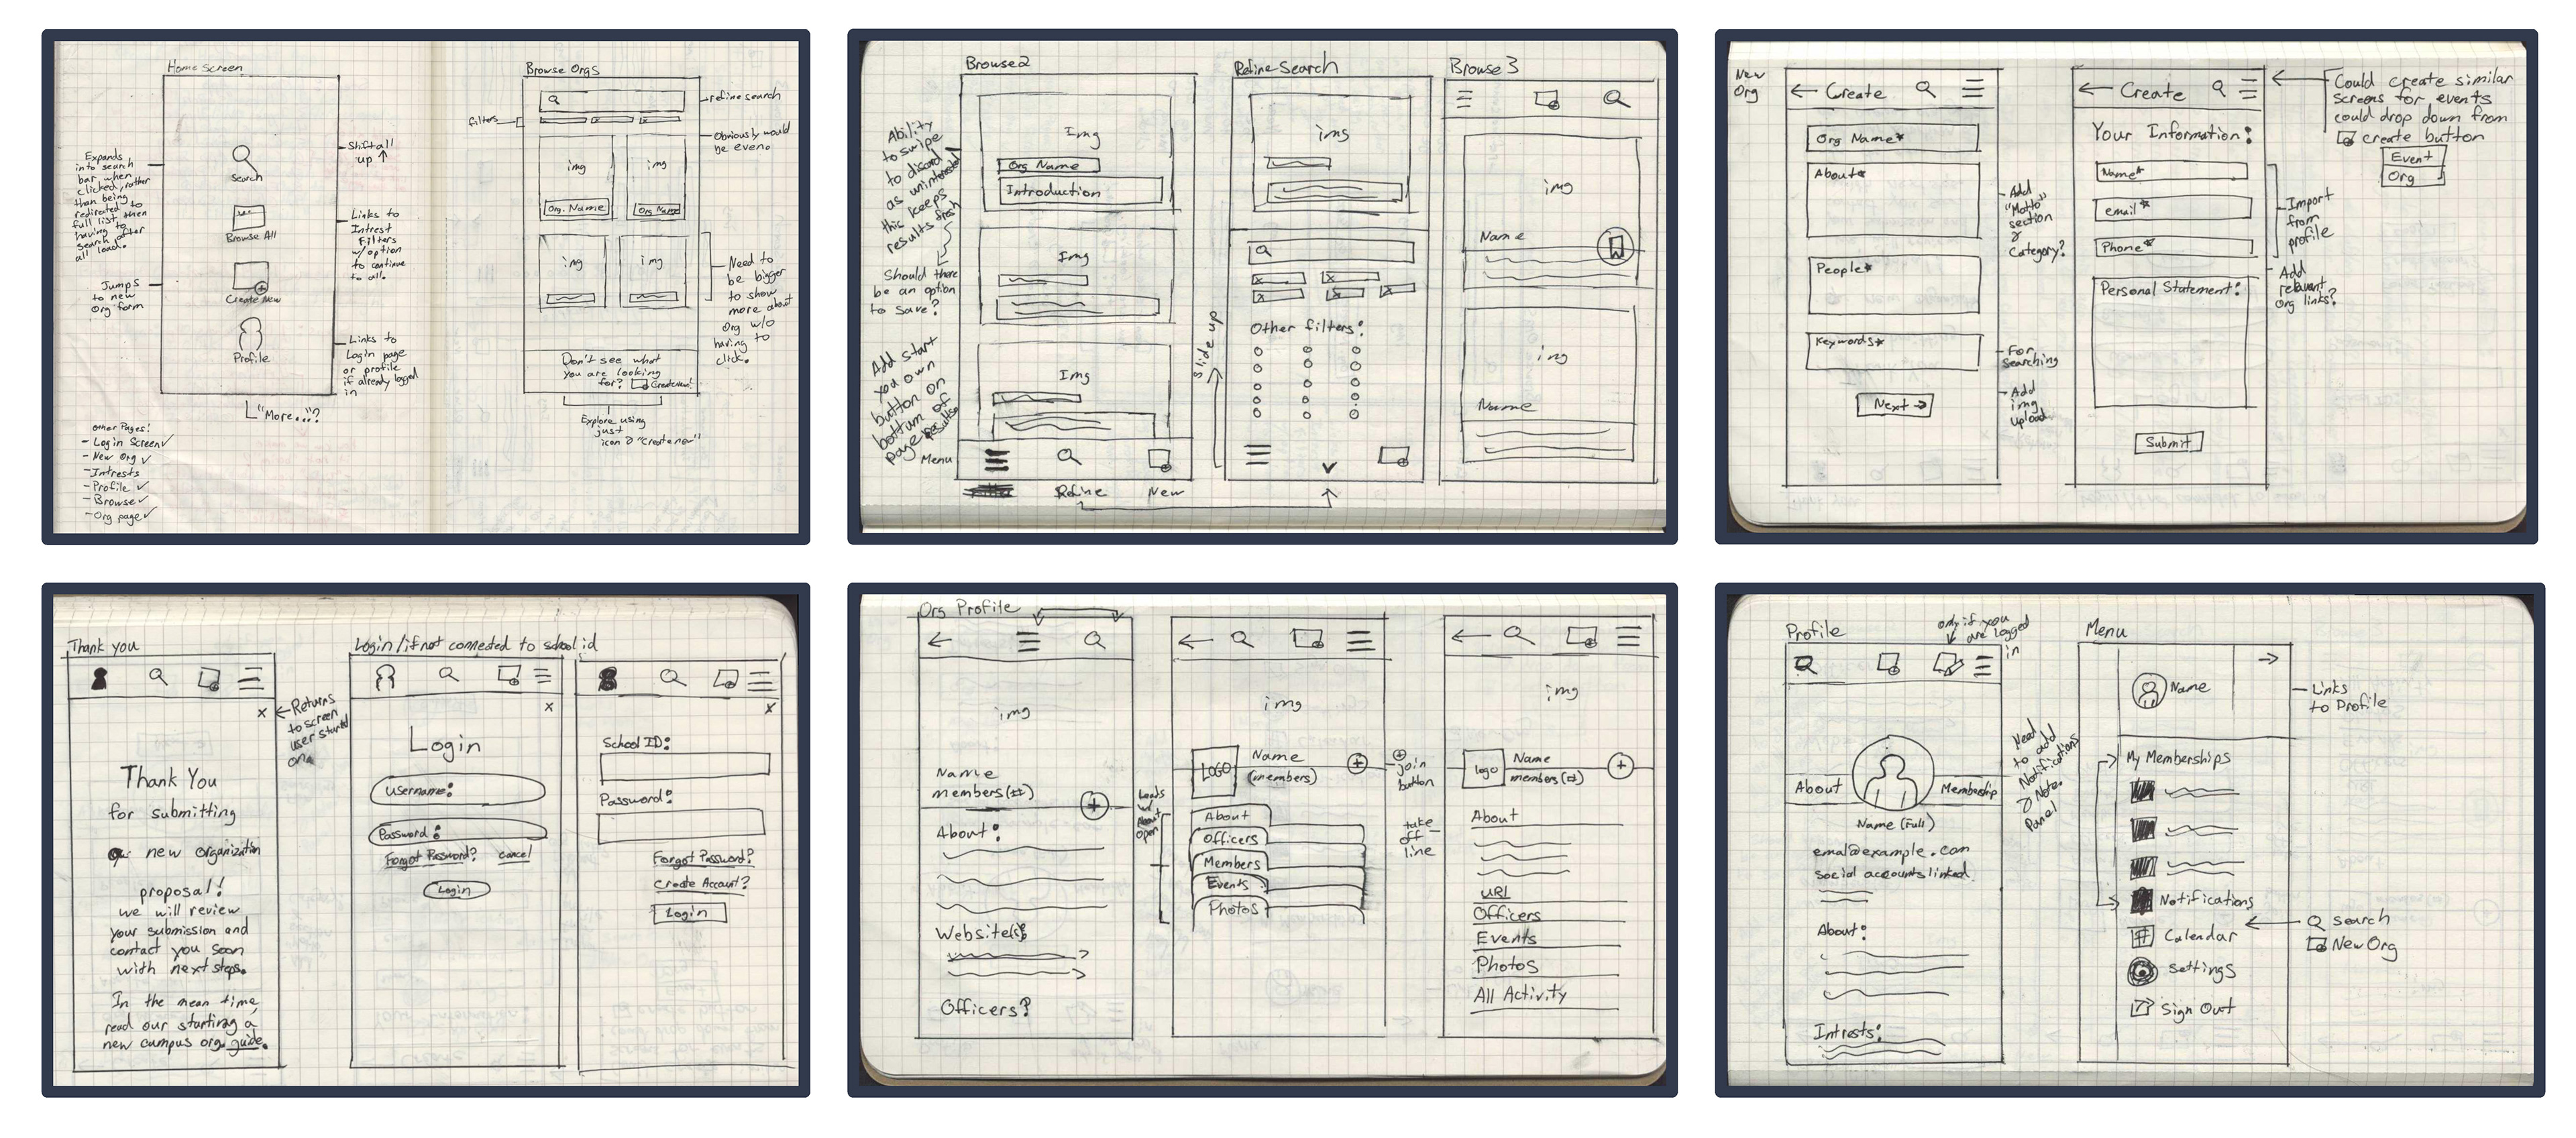 Home Screen
Search
Browse All
Create New
Profile
Expands
into search
bar when
clicked, rather
than being
redirected to
full list then
having to
search after
all load.
Jumps
to new
Org form
Shift all
up ↑
Links to
Intrest
Filters
w/option
to continue
to all.
Links to
Login page
or profile
if already logged
in
"More..."?
Other Pages:
- Login Screen ✓
- New Org ✓
- Intrests
- Profile ✓
- Browse ✓
- Org page ✓
Browse Orgs
filters
img
img
Org. Name
Org Name
img
img
Don't see what
you are looking
for? Create New!
refine search
Obviously would
be even.
Need to
be bigger
to show
more about
Org w/o
having to
click.
Explore using
just
icon & "Create new"
Browse 2
Img
Org Name
Introduction
Img
Img
Ability
to swipe
to discard
as uninterested
this keeps
results fresh
Should there
be an option
to save?
Add start
your own
button on
bottum of
page results
Menu
Refine
New
slide up
Refine Search
img
Other filters:
Browse 3
img
Name
img
Name
New
Org
← Create
Org Name*
About*
People*
Keywords*
Next →
Add
"Motto"
section
&
Category?
For
searching
Add
img
upload
← Create
Your Information:
Name*
email*
Phone*
Personal Statement:
Submit
Import
from
profile
Add
relevant
org links?
Could create similar
screens for events
could drop down from
create button
Event
Org
Thank you
x
Thank You
for submitting
new organization
proposal!
we will review
your submission and
contact you soon
with next steps.
In the mean time,
read our starting a
new campus org. guide.
← Returns
to screen
user started
on.
Login/if not connected to school id
x
Login
Username:
Password:
Forgot Password? cancel
Login
x
School ID:
Password:
Forgot Password?
Create Account?
Login
Org Profile
img
Name
members(#)
About:
Website(s):
Officers?
Loads
w/
About
open
img
LOGO
Name
(members)
About
Officers
Members
Events
Photos
join
button
take
off
line
img
logo
Name
members(#)
About
URL
Officers
Events
Photos
All Activity
Profile
only if you
are logged
in
About
Membership
Name (Full)
email@example.com
social accounts linked
About:
Intrests:
Need
to add
Notifications
& Notes
Panel
Menu
→
Name
My Memberships
Notifications
Calendar
Settings
Sign Out
Links
to Profile
search
New Org